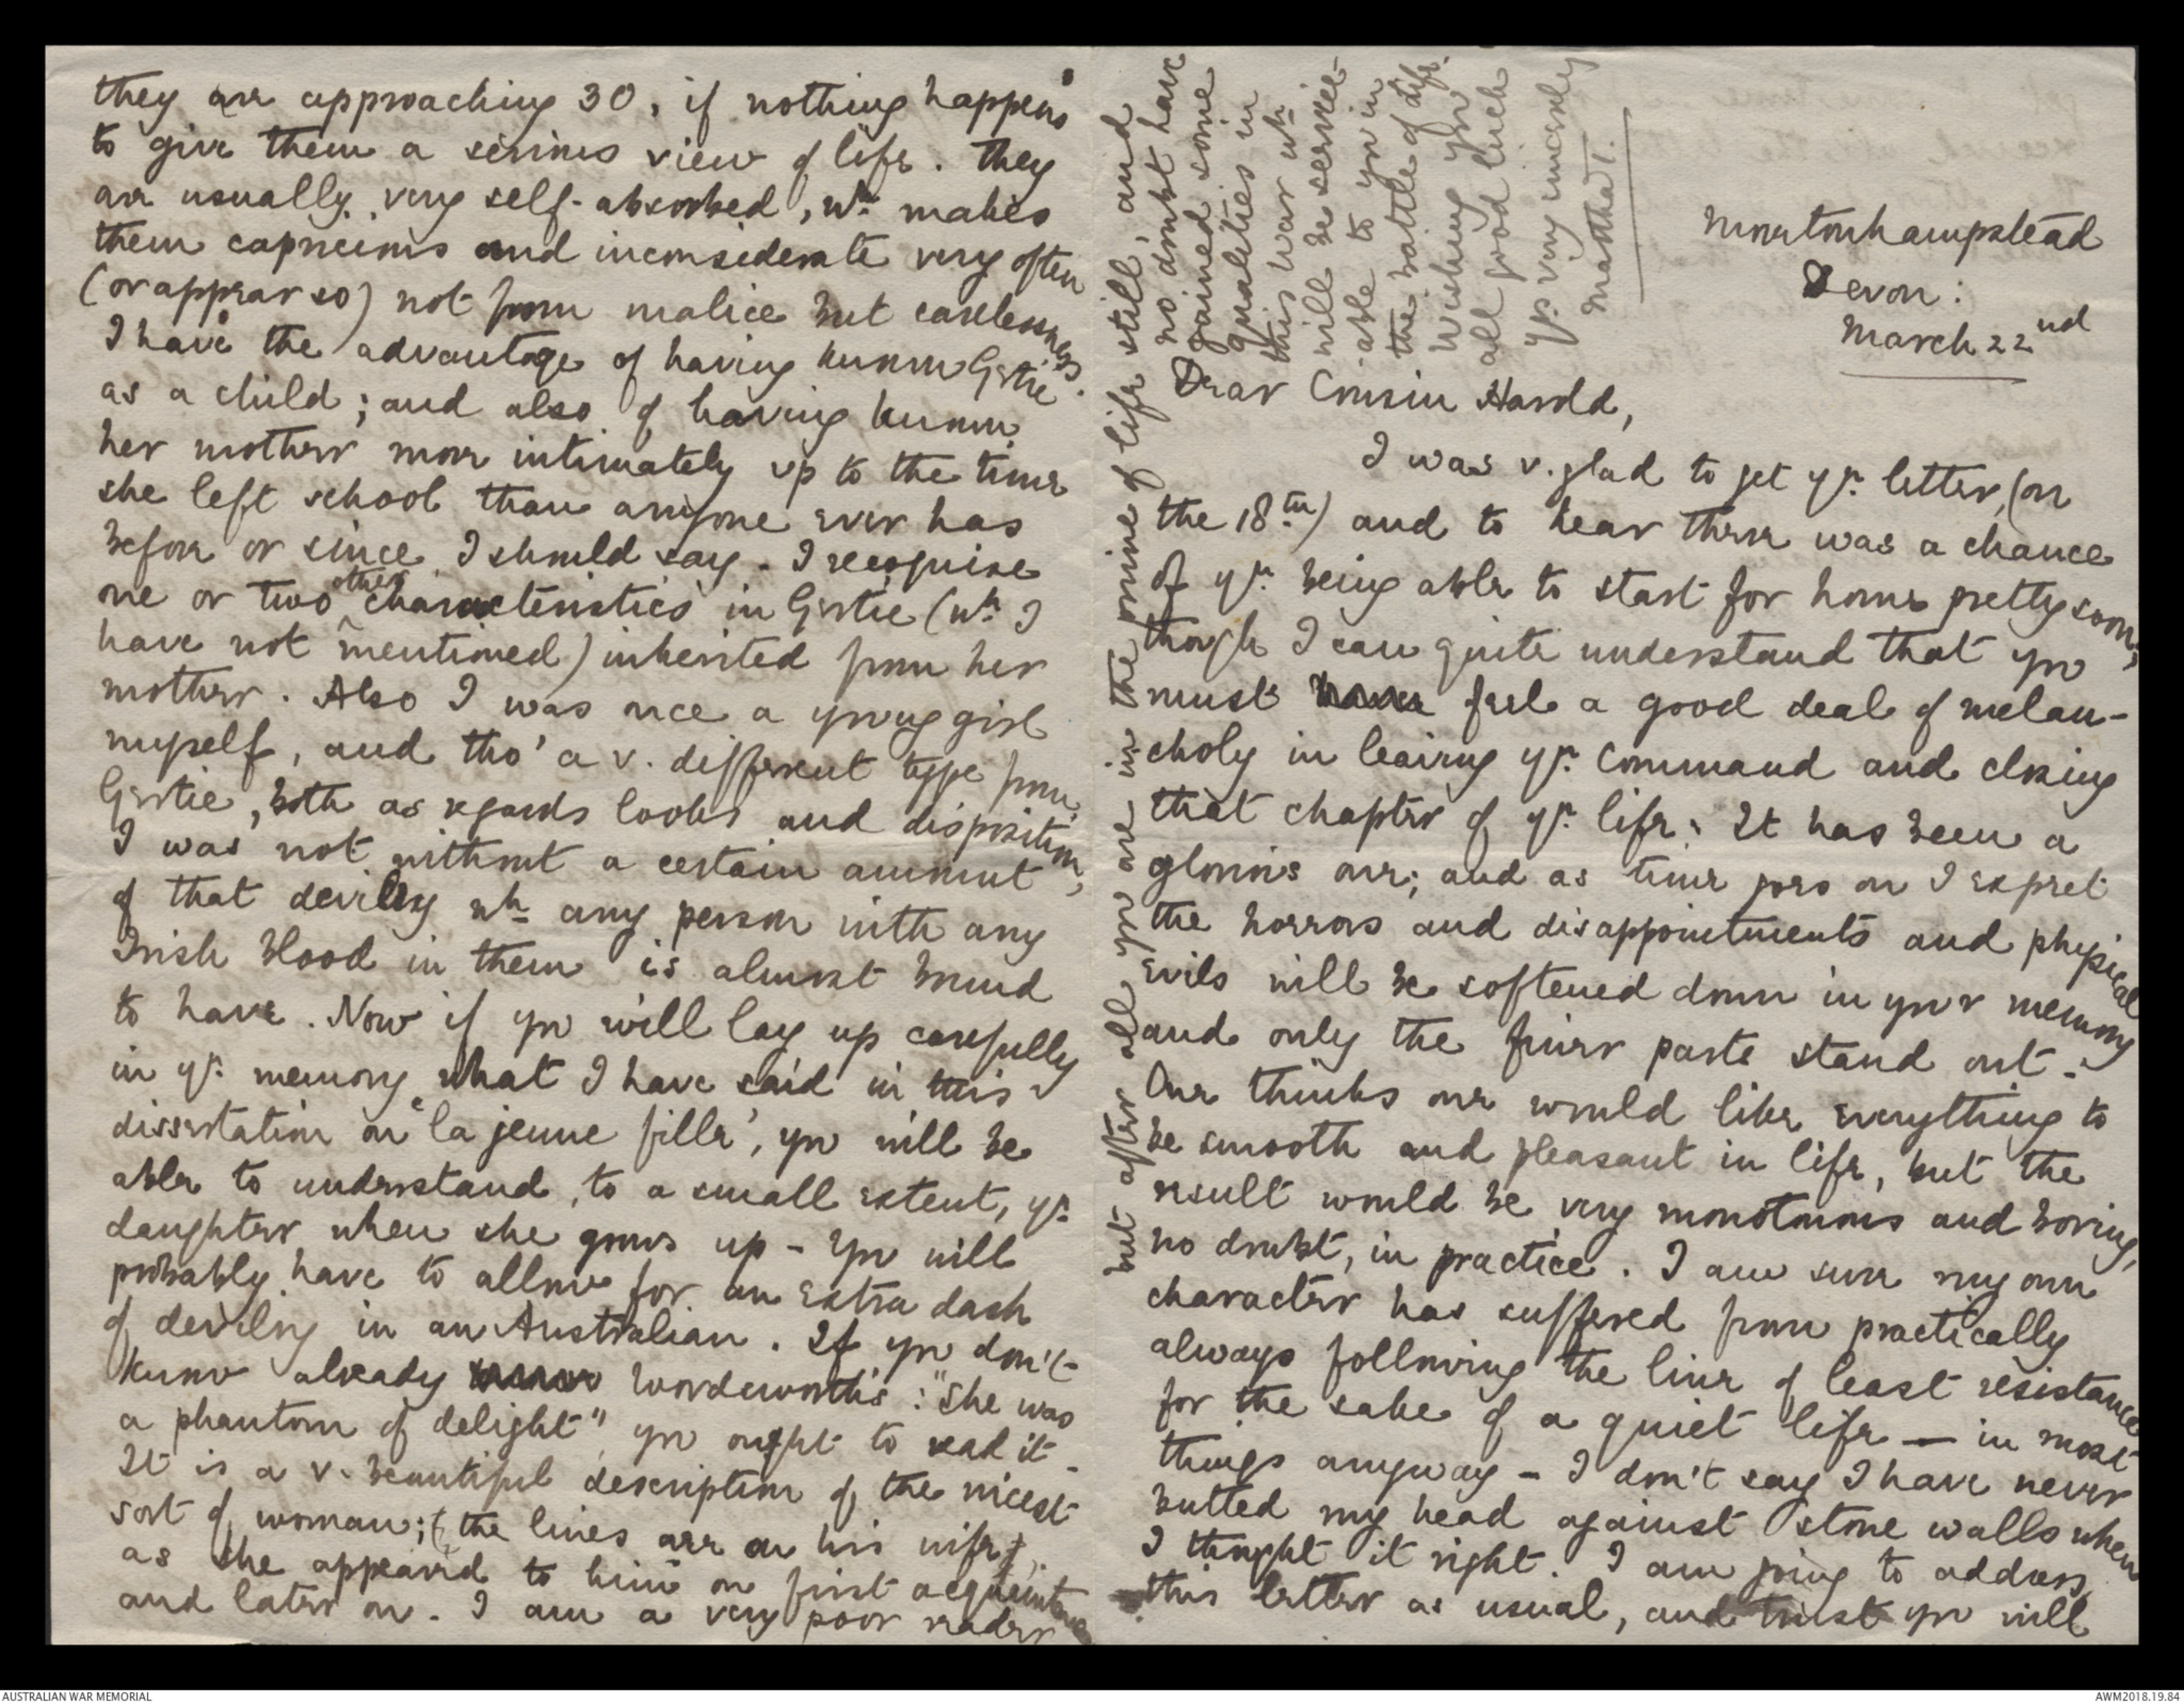 they are approaching 30, if nothing happens
to give them a serious view of life. They
are usually very self-absorbed, wh. makes
them capricious and inconsiderate very often
(or appear so) not from malice but carelessness.
I have the advantage of having known Gertie
as a child; and also of having known
her mother more intimately up to the time
she left school than anyone ever has
before or since I should say - I recognise
one or two other characteristics in Gertie (wh. I
have not mentioned) inherited from her
mother. Also I was once a young girl
myself, and tho' a v. different type from
Gertie, both as regards looks and disposition,
I was not without a certain amount
of that devilry wh any person with any
Irish blood in them is almost bound
to have. Now if you will lay up carefully
in yr. memory what I have said in this
dissertation on 'la jeune fille', you will be
able to understand, to a small extent, yr.
daughter when she grows up - You will
probably have to allow for an extra dash
of devilry in an Australian. If you don't
know already Wordsworth's: "She was
a phantom of delight" you ought to read it -
It is a v. beautiful description of the nicest
sort of woman; (the lines are on his wife)
as she appeared to him on first acquaintance
and later on. I am a very poor reader
Moretonhampstead
Devon:
March 22nd
Dear Cousin Harold,
I was v. glad to get yr. letter, (on
the 18th) and to hear there was a chance
of yr. being able to start for home pretty soon;
though I can quite understand that you
must feel a good deal of melan-
choly in leaving yr. Command and closing
that chapter of yr. life: It has been a
glorious one; and as time goes on I expect
the horrors and disappointments and physical
evils will be softened down in your memory
and only the finer parts stand out -
One thinks one would like everything to
be smooth and pleasant in life, but the
result would be very monotonous and boring,
no doubt, in practice. I am sure my own
character has suffered from practically
always following the line of least resistance
for the sake of a quiet life — in most
things anyway - I don't say I have never
butted my head against stone walls when
I thought it right. I am going to address
this letter as usual, and trust you will
but after all you are in the prime of life still, and
no doubt have
gained some
qualities in
this war wh
will be service-
able to you in
the battle of life.
Wishing you
all good luck
Yrs. very sincerely
Martha T.
AUSTRALIAN WAR MEMORIAL
AWM2018.19.84